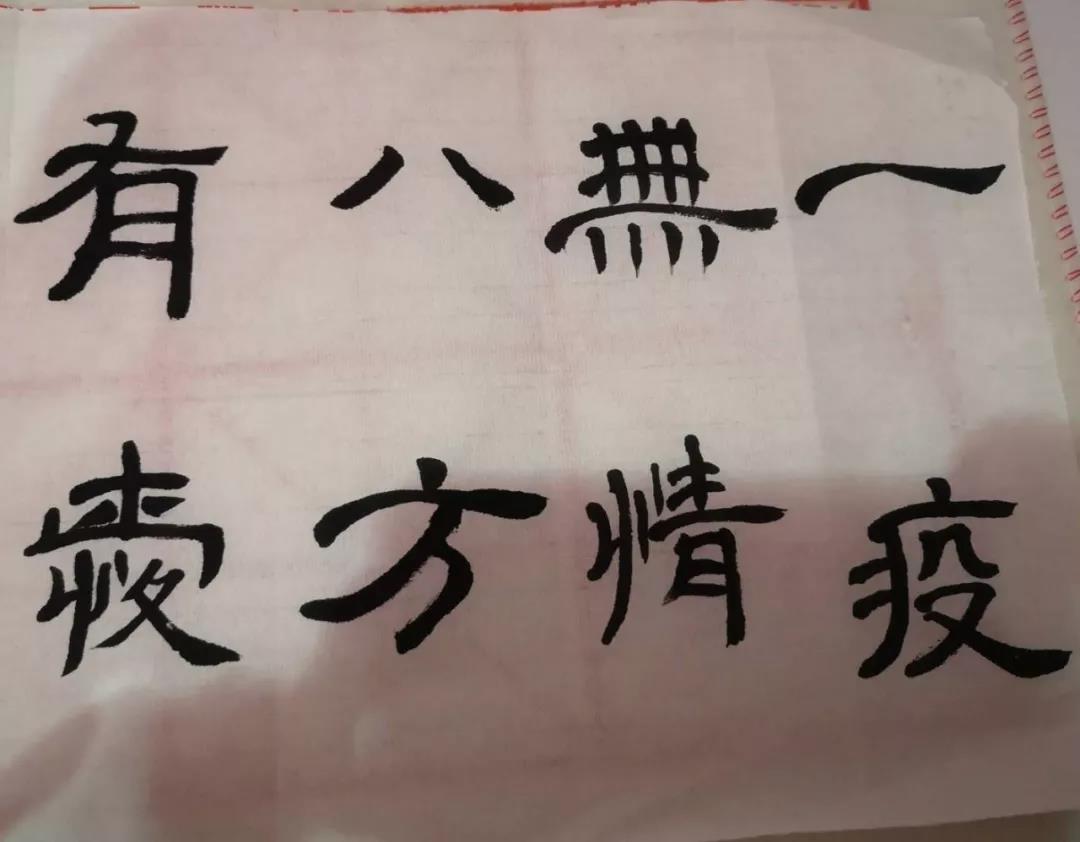 一疫
無情
八方
有愛